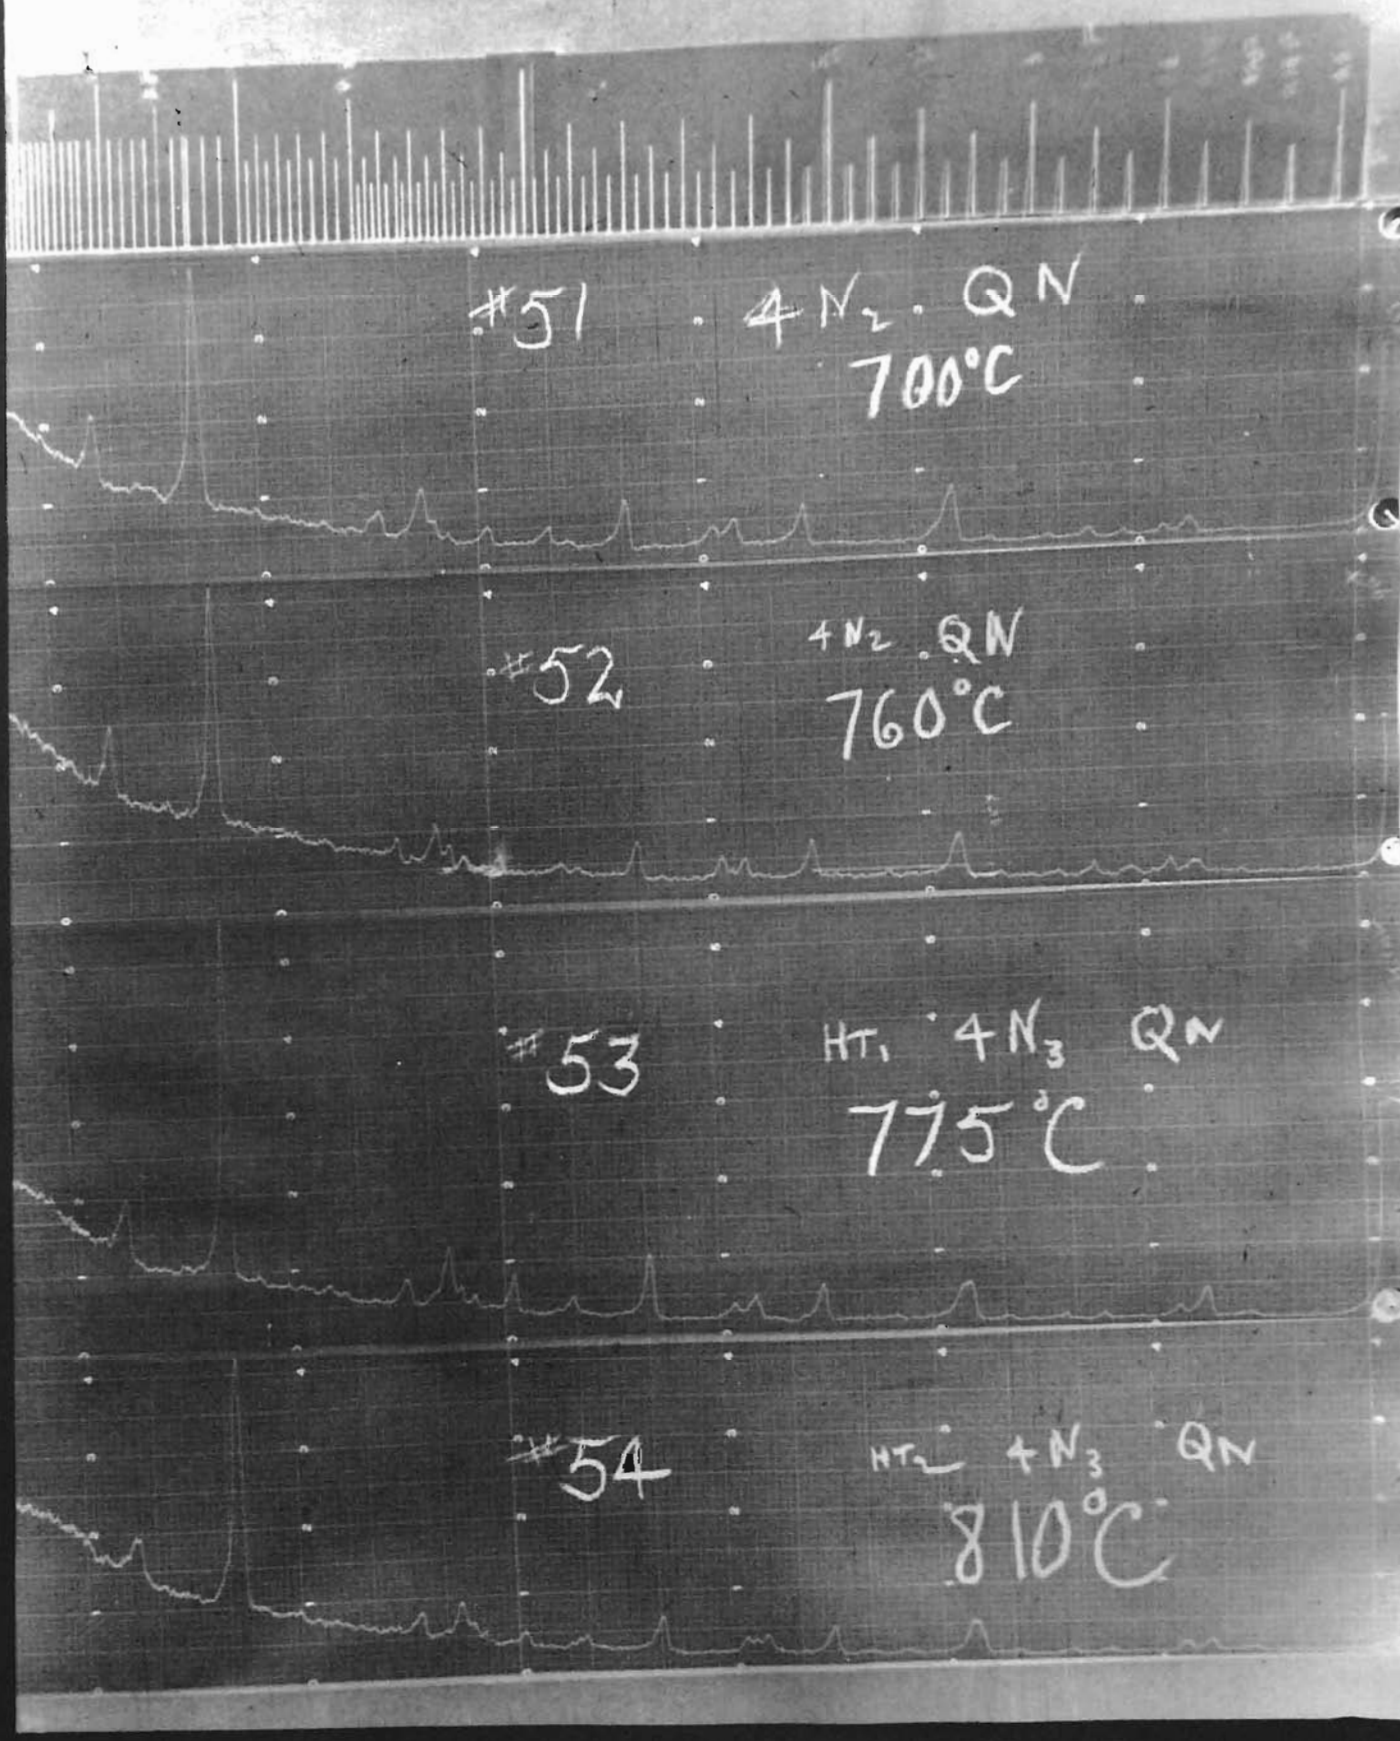 #51 4N₂. QN
700°C
#52 4N₂ . QN
760°C
#53 HT₁ 4N₃ QN
775°C
#54 HT₂ 4N₃ QN
810°C